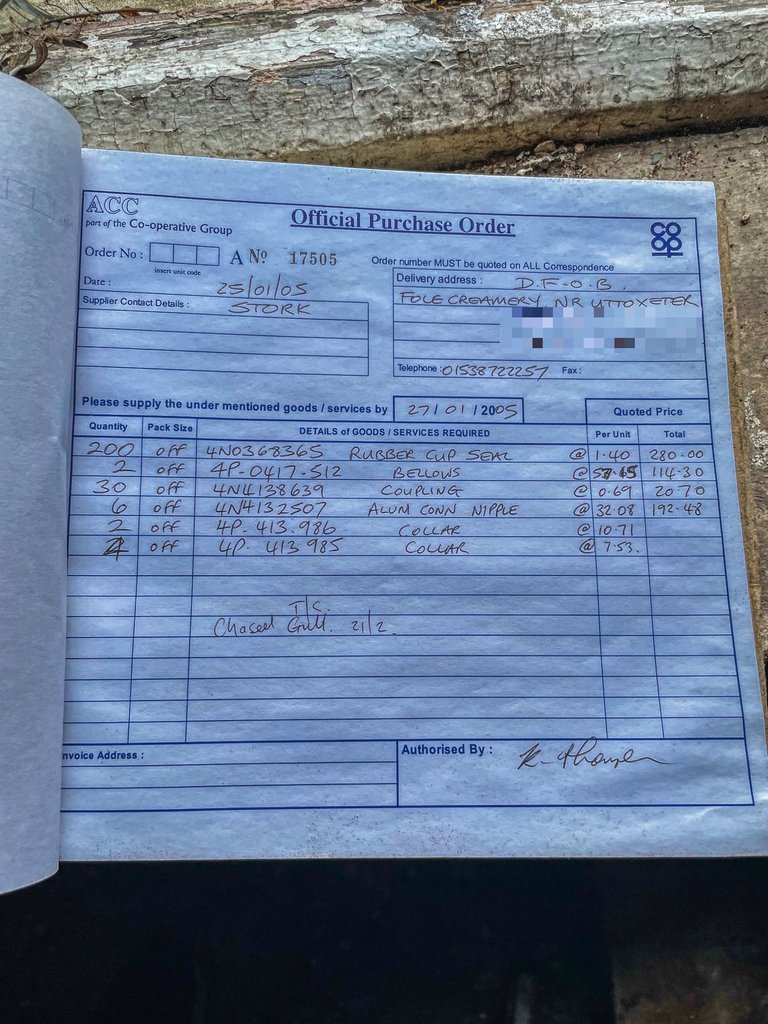 ACC
part of the Co-operative Group
Official Purchase Order
CO OP
Order No :
insert unit code
A No 17505
Order number MUST be quoted on ALL Correspondence
Date : 25/01/05
Delivery address : D.F.O.B.
FOLE CREAMERY, NR UTTOXETER
Supplier Contact Details : STORK
Telephone : 01538722257 Fax :
Please supply the under mentioned goods / services by 27/01/2005
Quoted Price
Quantity Pack Size DETAILS of GOODS / SERVICES REQUIRED Per Unit Total
200 off 4N0368365 RUBBER CUP SEAL @ 1.40 280.00
2 off 4P-0417-512 BELLOWS @ 57.15 114.30
30 off 4N4138639 COUPLING @ 0.69 20.70
6 off 4N4132507 ALUM CONN NIPPLE @ 32.08 192.48
2 off 4P. 413.986 COLLAR @ 10.71
off 4P. 413 985 COLLAR @ 7.53.
T/C.
Chased 21/2.
nvoice Address :
Authorised By :